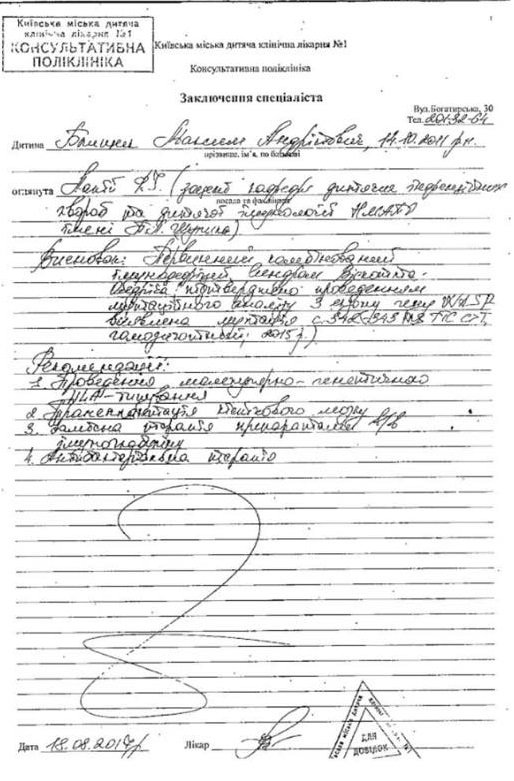 Київська міська дитяча
клінічна лікарня №1
КОНСУЛЬТАТИВНА
ПОЛІКЛІНІКА
Київська міська дитяча клінічна лікарня №1
Консультативна поліклініка
Заключення спеціаліста
Вул.Богатирська, 30
Тел.
Дитина Максим Андрійович, 14.10.2011 р.н.
прізвище, ім'я, по батькові
оглянута (доцент кафедри дитячих
посада та фахівець
хвороб та дитячої НМАПО
імені П.Л. Шупика)
Висновок: Первинний комбінований
імунодефіцит, синдром Віскотта-
Олдріча підтверджено проведенням
мутаційного аналізу 3 екзону гена WASP
виявлена мутація
2015 р.)
Рекомендації:
1. Проведення молекулярно-генетичного
HLA-типування
2. Трансплантація кісткового мозку
3. Замісна терапія препаратами в/в
імуноглобуліну
4. Антибактеріальна терапія
Дата 18.08.2017р Лікар
ДЛЯ
ДОВІДОК